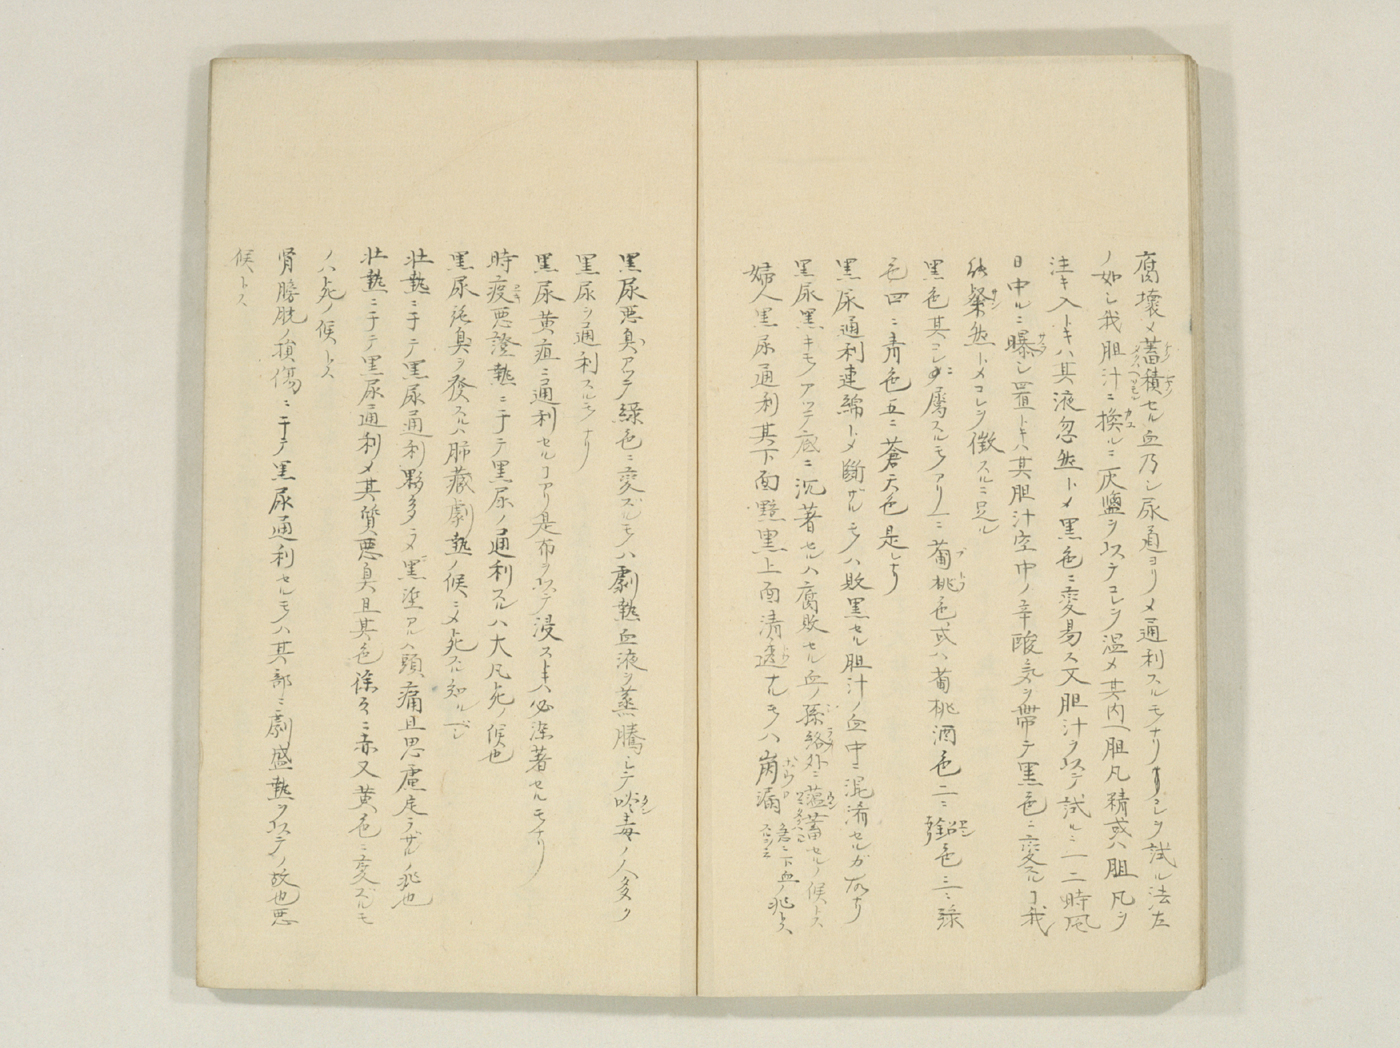 腐壊メ蓄積セル血乃シ尿道ヨリメ通利スルモノナリコレヲ試ル法左
ノ如シ我胆汁ニ換ルニ灰塩ヲ以テコレヲ温メ其内ヘ胆凡精或ハ胆凡ヲ
注キ入トキハ其液忽然トメ黒色ニ変易ス又胆汁ヲ以テ試ルニ一二時風
日中ルニ曝シ置トキハ其胆汁空中ノ辛酸気ヲ帯テ黒色ニ変スルヿ我
説粲然トメコレヲ徴スルニ足ル
黒色其コレニ属スルモノアリ一ニ葡桃色或ハ葡桃酒色二ニ色三ニ緑
色四ニ青色五ニ蒼天色是レナリ
黒尿通利連綿トメ断ザルモノハ敗黒セル胆汁ノ血中ニ混淆セルガ故ナリ
黒尿黒キモノアツテ底ニ沉著セルハ腐敗セル血ノ孫絡外ニ蘊蓄セルノ候トス
婦人黒尿通利其下面黯黒上面清透ナルモノハ崩漏ノ兆トス
黒尿悪臭アツテ緑色ニ変ズルモノハ劇熱血液ヲ蒸騰シテ毒ノ人多ク
黒尿ヲ通利スルモノナリ
黒尿黄疸ニ通利セルヿアリ是布ヲ以テ浸ストキハ必染著セルモノナリ
時疫悪證熱ニ于テ黒尿ノ通利スルハ大凡死ノ候也
黒尿純臭ヲ發スルハ肺藏劇熱ノ候ニメ死スル知ルベシ
壮熱ニ于テ黒尿通利夥多ニメ黒塗アルハ頭痛且思慮定ラザルノ兆也
壮熱ニ于テ黒尿通利メ其質悪臭且其色徐々ニ赤又黄色ニ変ズルモ
ノハ死ノ候トス
腎膀胱ノ損傷ニ于テ黒尿通利セルモノハ其部ニ劇盛熱ヲ以テノ故也悪
候トス